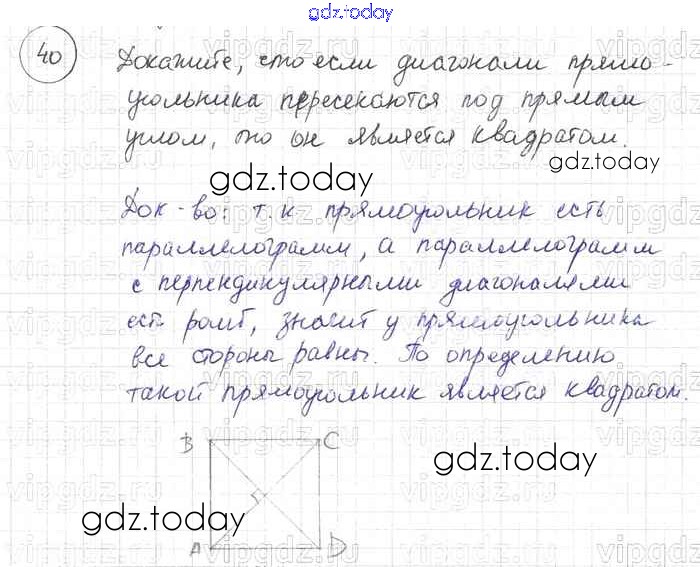 gdz.today
40
Докажите, что если диагонали прямо-
угольника пересекаются под прямым
углом, то он является квадратом.
gdz.today
gdz.today
Док-во: т.к прямоугольник есть
параллелограмм, а параллелограмм
с перпендикулярными диагоналями
есть ромб, значит у прямоугольника
все стороны равны. По определению
такой прямоугольник является квадратом.
B C
gdz.today
gdz.today
A D